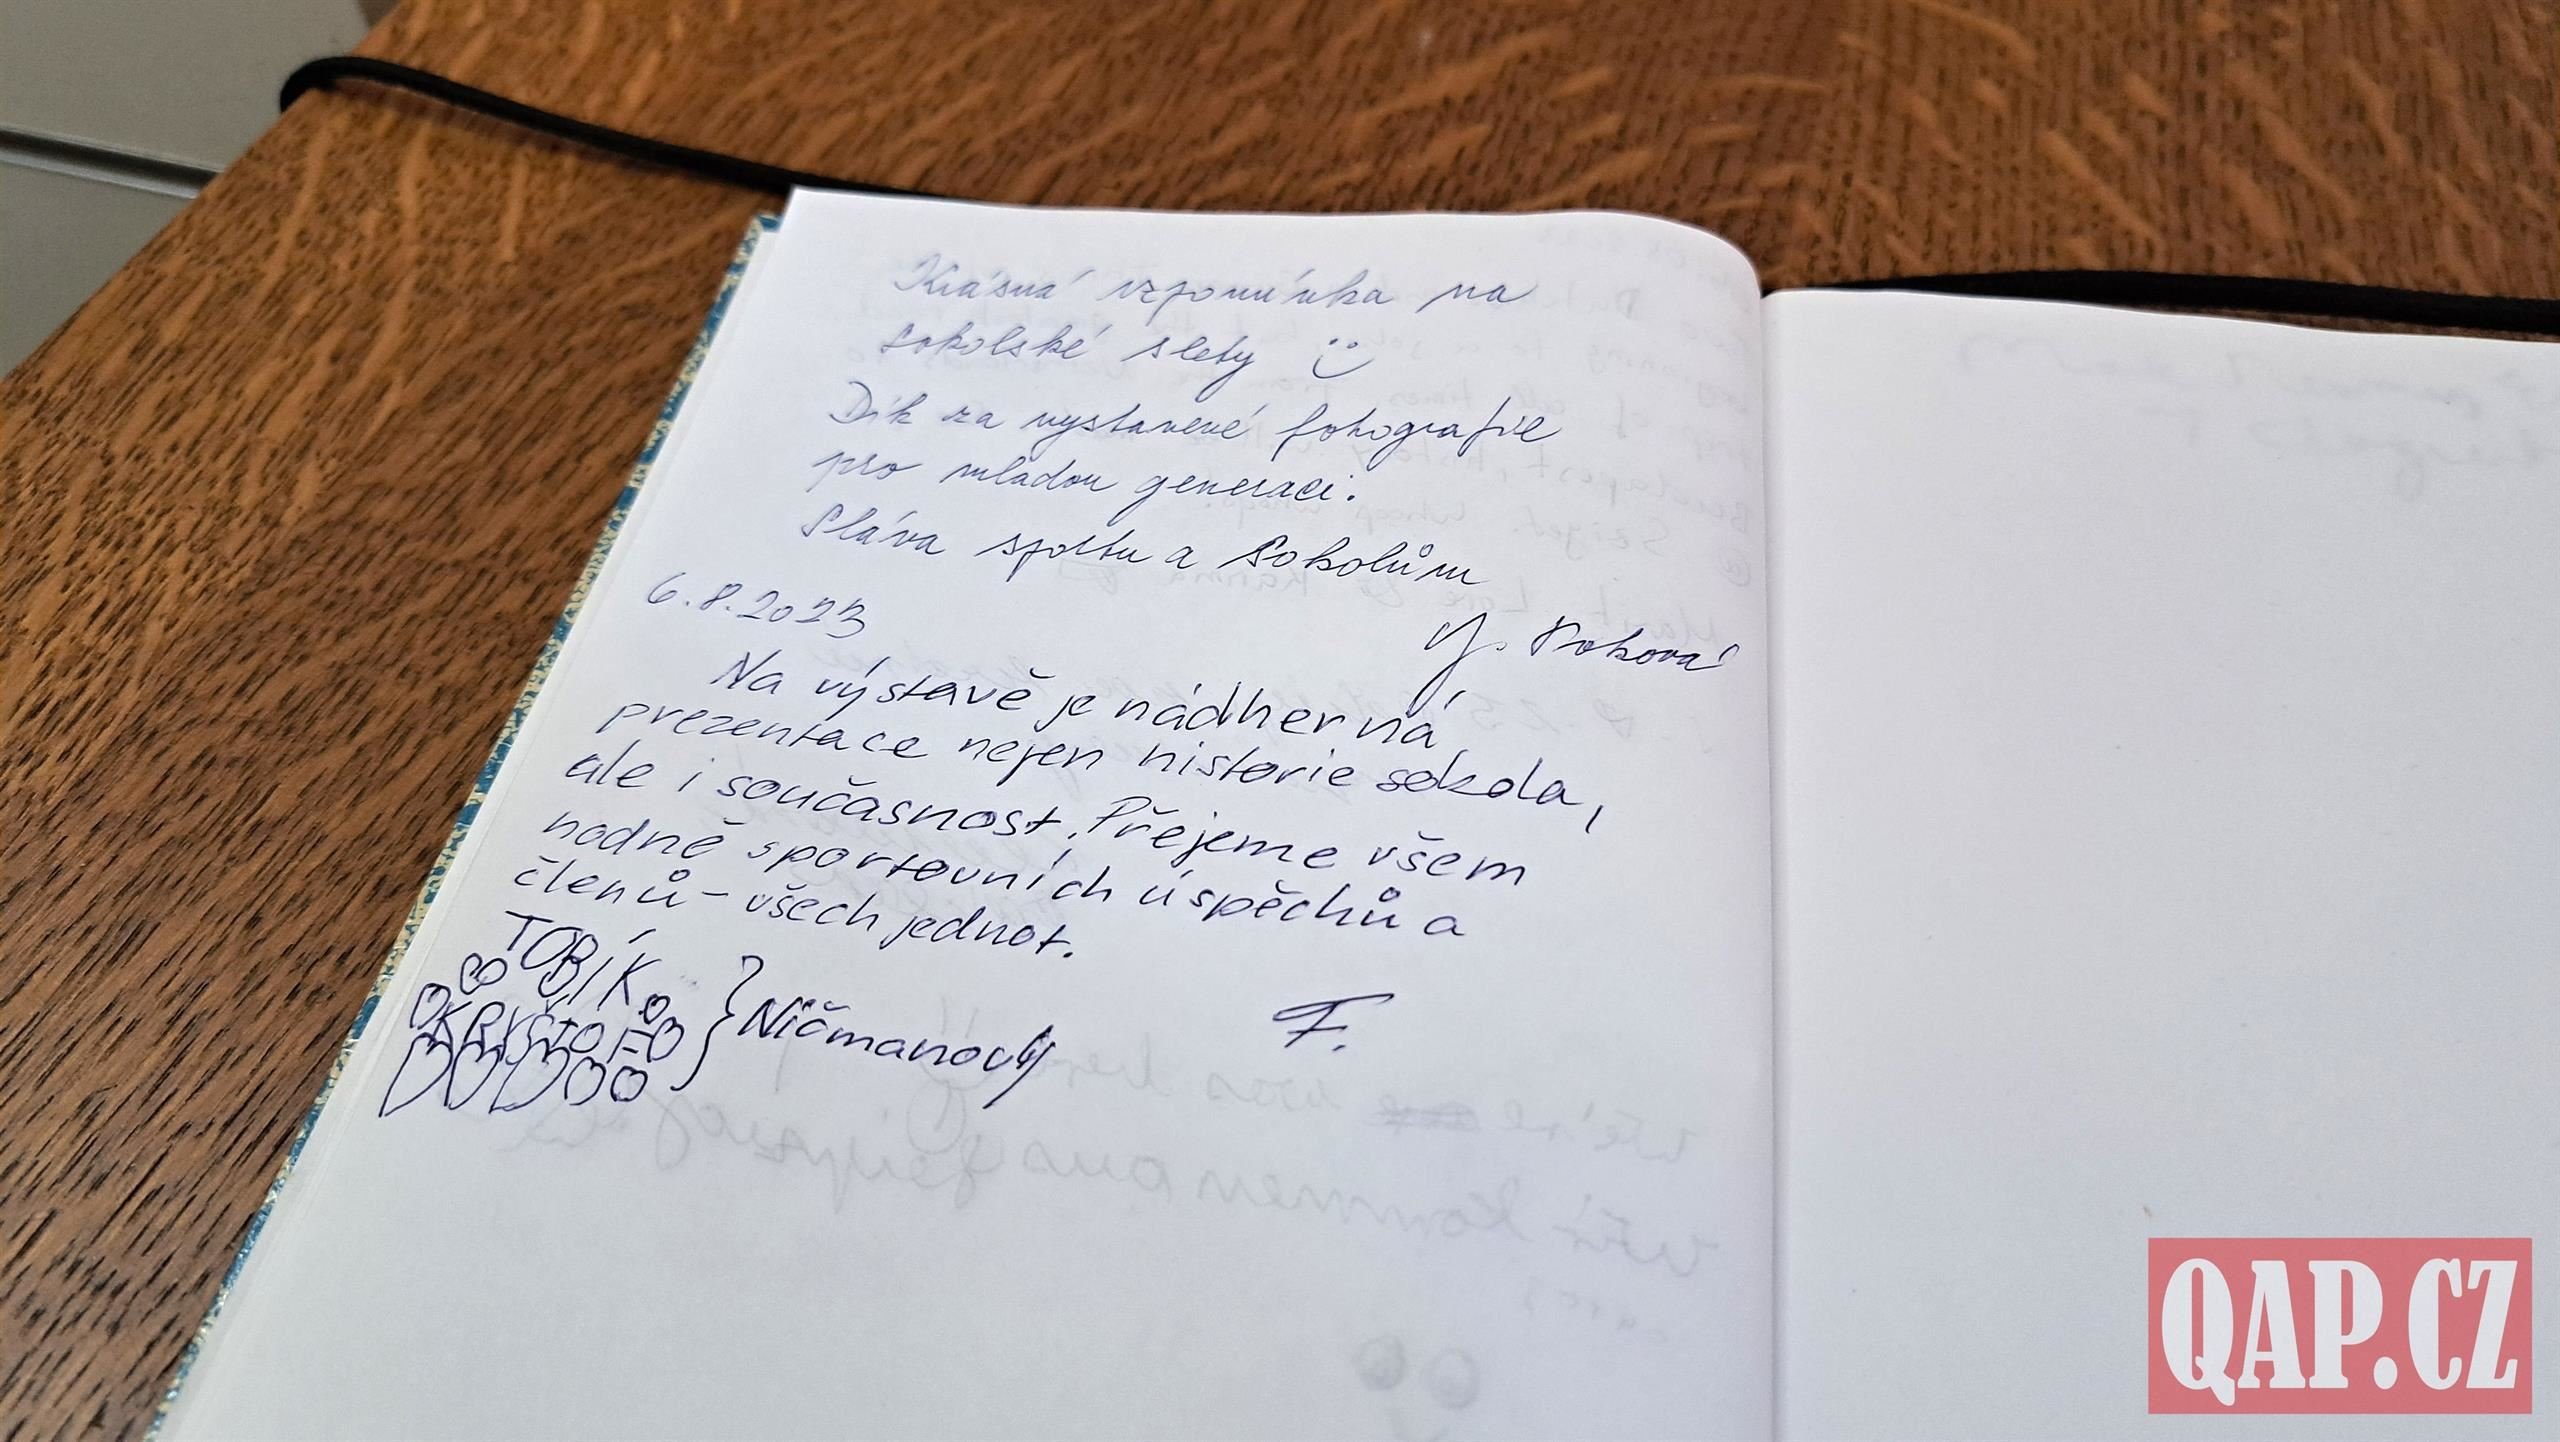 Krásná vzpomínka na
sokolské slety
Dík za vystavené fotografie
pro mladou generaci.
Sláva sportu a Sokolům
6.8.2023
Na výstavě je nádherná
prezentace nejen historie sokola,
ale i současnost. Přejeme všem
hodně sportovních úspěchů a
členů - všech jednot.
TOBÍK
KRYŠTOF
} Ničmanovi
F.
QAP.CZ